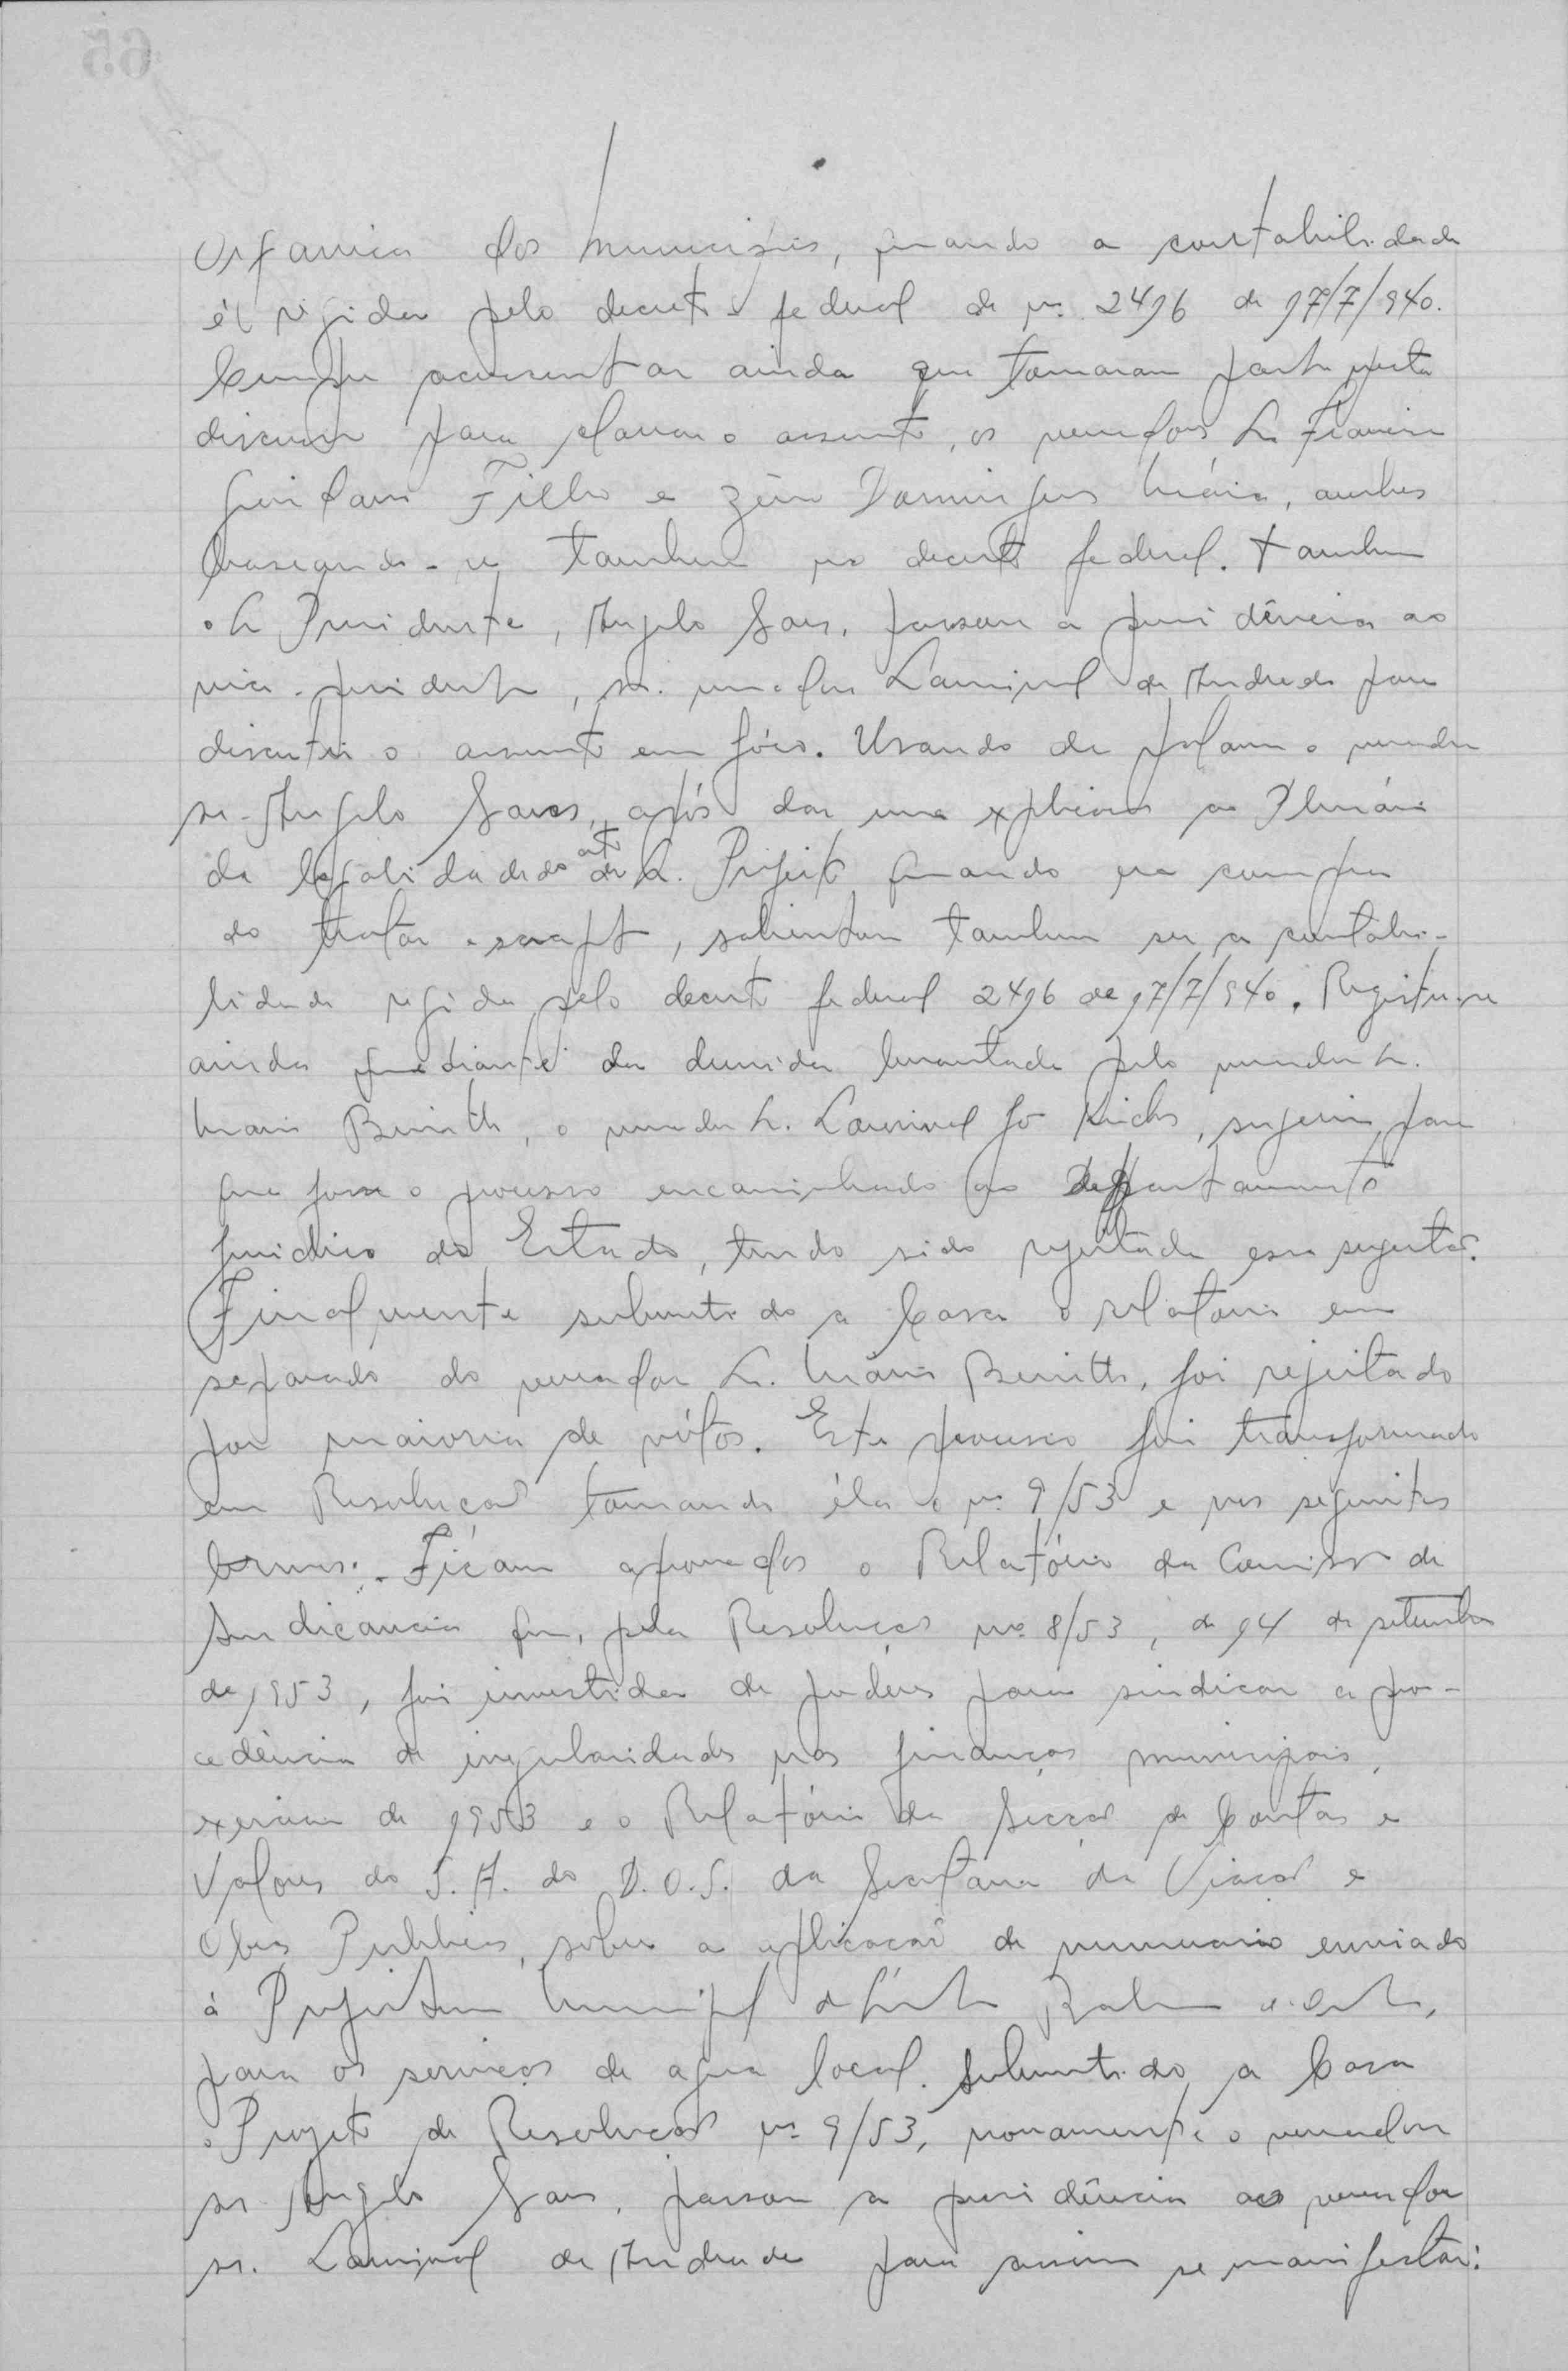 Organica dos municipios, quando a contabilidade
é regida pelo decreto federal de nº 2416 de 17/7/940.
Cumpre acrescentar ainda que tomaram parte nesta
discussão para o assunto, os vereadores Sr.
Filho e Zéno Domingos Mário, ambos
baseando-se tambem no decreto federal. Tambem
o Sr Presidente, Angelo Goes, passou a presidência ao
vice-presidente, sr. vereador Lourival de Andrade para
discutir o assunto em fóco. Usando da palavra o vereador
sr. Angelo Goes, após dar uma explicação ao Plenário
da legalidade do ato do Sr. Prefeito quando da compra
do trator e, salientou tambem ser a contabi-
lidade regida pelo decreto federal 2416 de 17/7/940. Registre-se
ainda que diante da duvida levantada pelo vereador Sr.
Mario Benitti, o vereador Sr. Lourival, sugeriu para
que fosse o processo encaminhado ao Departamento
Juridico do Estado, tendo sido rejeitada essa sugestão.
Finalmente submetido a Casa o relatorio em
separado do vereador Sr. Mário Benitti, foi rejeitado
por maioria de vótos. Este processo foi transformado
em Resolução tomando éla o nº 9/53 e nos seguintes
termos:- Ficam aprovados o Relatório da Comissão de
Sindicancia que, pela Resolução nº 8/53, de 14 de setembro
de 1953, foi investida de poderes para sindicar a pro-
cedência de irregularidades nas finanças municipais,
exercicio de 1953 e o Relatório da Secção de Contas e
Valores do S.A. do D.O.S. da Secretaria da Viação e
Obras Publicas, sobre a aplicação de numerario enviado
á Prefeitura Municipal de
para os serviços de agua local. Submetido a Casa
o Projeto de Resolução nº 9/53, novamente o vereador
sr. Angelo Goes, passou a presidência ao vereador
sr. Lourival de Andrade para assim se manifestar:
65